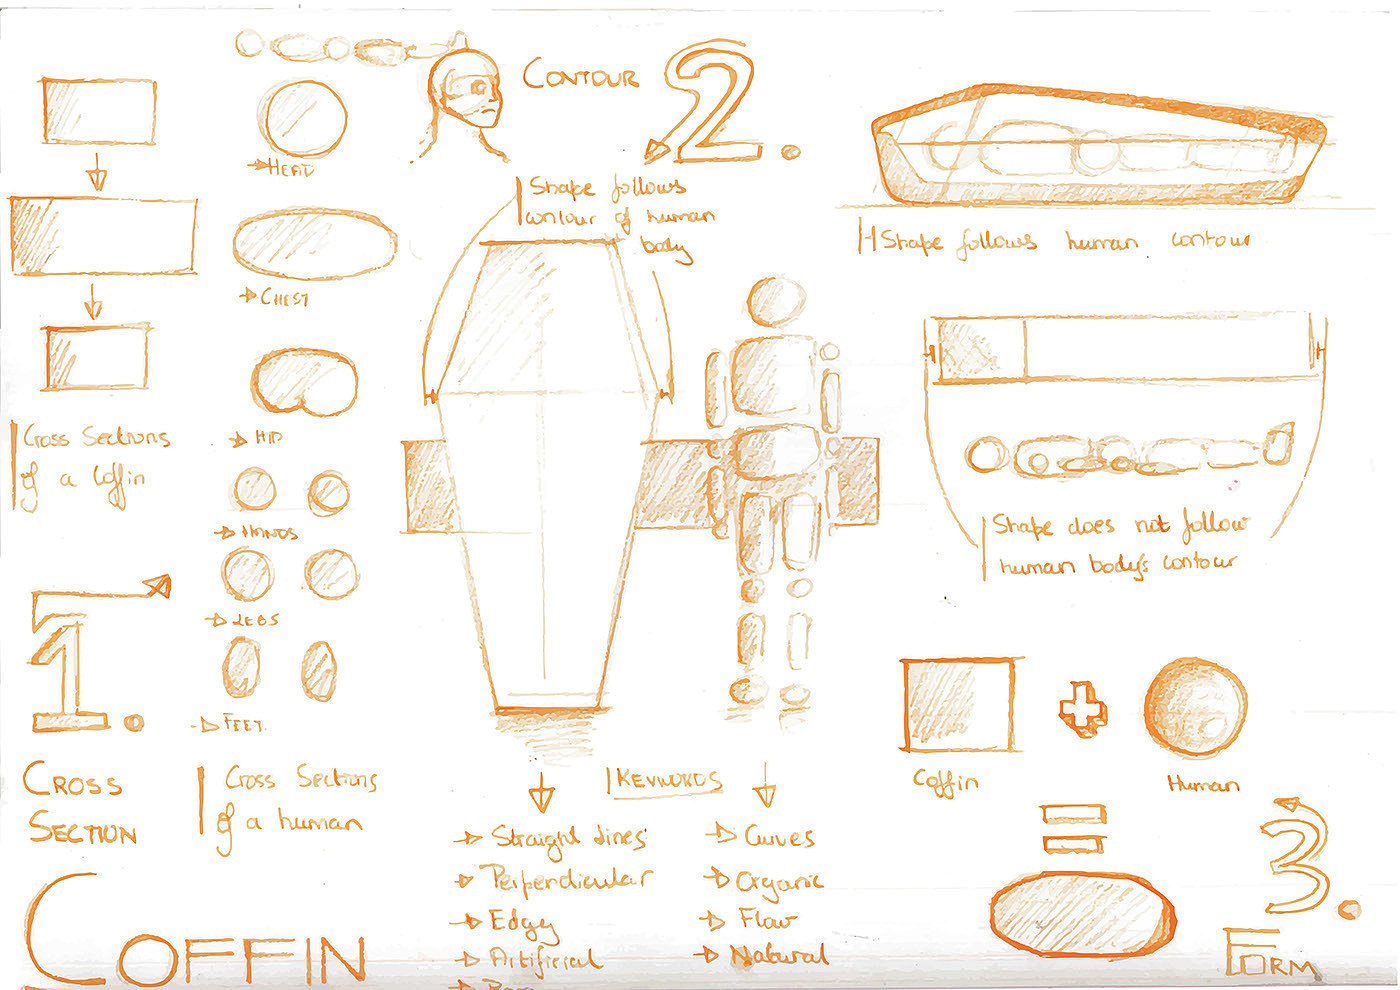 HEAD
CHEST
HIP
HANDS
LEGS
FEET.
Cross Sections
of a Coffin
1.
CROSS
SECTION
Cross Sections
of a human
COFFIN
CONTOUR
2.
Shape follows
contour of human
body
KEYWORDS
Straight lines
Perpendicular
Edgy
Artificial
Curves
Organic
Flow
Natural
Shape follows human contour
Shape does not follow
human body's contour
Coffin
+
Human
=
3.
FORM